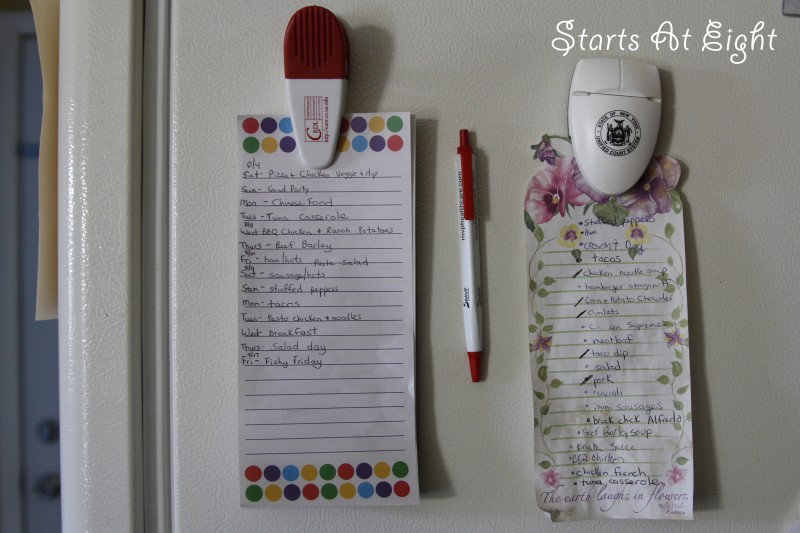 Starts At Eight
CBDL
http://cars.cs.sa.edu
5/4
Sat- Pizza + Chicken Veggie + dip
Sun- Grad Party
Mon - Chinese Food
Tues - Tuna Casserole
Wed- BBQ Chicken + Ranch Potatoes
Thurs - Beef Barley
Fri - ham/hots Pasta Salad
Sat - sausage/hots
Sun - stuffed peppers
Mon - tacos
Tues - Pesto chicken + noodles
Wed - Breakfast
Thurs - Salad day
5/17
Fri - Fishy Friday
mvphealthcare.com
STATE OF NEW YORK
UNIFIED COURT SYSTEM
• stuffed peppers
• Ham
tacos
chicken noodle soup
• hamburger
Corn + Potato Chowder
Omlets
Supreme
• meatloaf
taco dip
• salad
pork
• ravioli
• mini sausages
• Alfredo
• Beef Barley soup
• BBQ Chicken
• chicken french
• tuna casserole
The earth laughs in flowers.